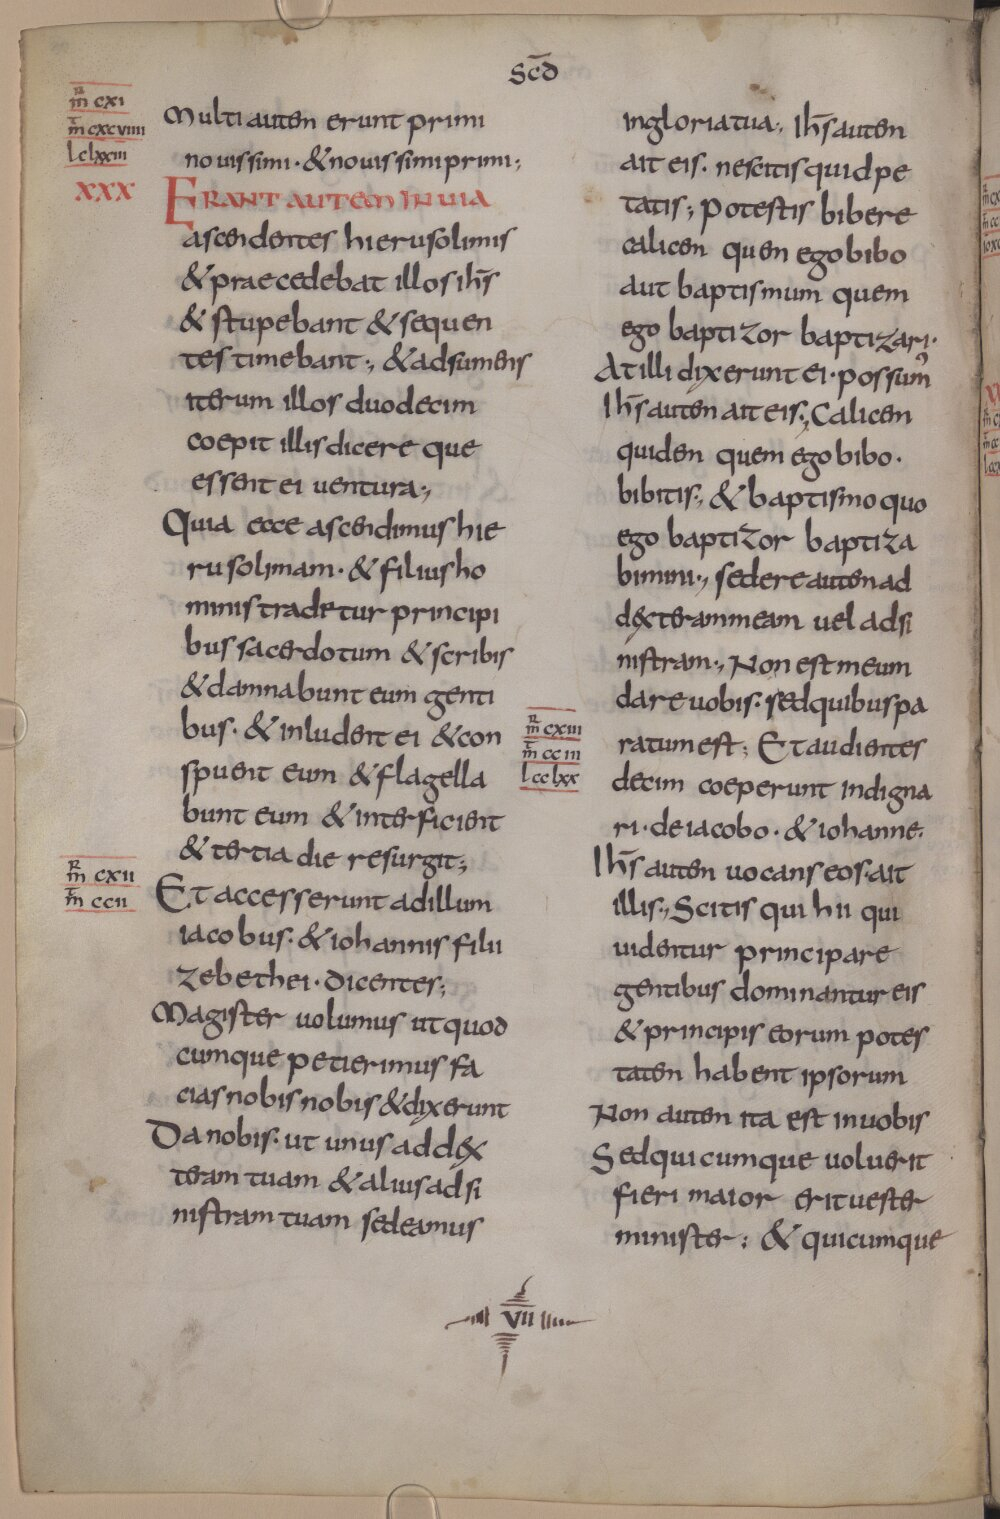 Scd̄
m̄ cxi
m̄ cxcviiii
l clxxiii
xxx
Multi autem erunt primi
novissimi · & novissimi primi;
ERANT AUTEM IN VIA
ascendentes hierusolimis
& praecedebat illos ih̄s
& stupebant & sequen
tes timebant ; & adsumens
iterum illos duodecim
coepit illis dicere que
essent ei ventura ;
Quia ecce ascendimus hie
rusolimam · & filius ho
minis tradetur principi
bus sacerdotum & scribis
& damnabunt eum genti
bus · & inludent ei & con
spuent eum & flagella
bunt eum & interficient
& tertia die resurgit ;
m̄ cxii
m̄ ccii
Et accesserunt ad illum
iacobus · & iohannis filii
zebethei · dicentes ;
Magister volumus ut quod
cumque petierimus fa
cias nobis nobis & dixerunt
Da nobis · ut unus ad dex
teram tuam & alius ad si
nistram tuam sedeamus
in gloria tua ; Ih̄s autem
ait eis · nescitis quid pe
tatis ; potestis bibere
calicem quem ego bibo
aut baptismum quem
ego baptizor baptizari ·
At illi dixerunt ei · possum᾿
Ih̄s autem ait eis ; Calicem
quidem quem ego bibo ·
bibitis ; & baptismo quo
ego baptizor baptiza
bimini ; sedere autem ad
dexteram meam vel ad si
nistram ; Non est meum
dare vobis · sed quibus pa
ratum est ; Et audientes
m̄ cxiii
m̄ cciii
l cclxx
decim coeperunt indigna
ri · de iacobo · & iohanne ·
Ih̄s autem vocans eos · ait
illis ; Scitis qui hii qui
videntur principare
gentibus dominantur eis
& principis eorum potes
tatem habent ipsorum
Non autem ita est in vobis
Sed quicumque voluerit
fieri maior erit vester
minister ; & quicumque
VII